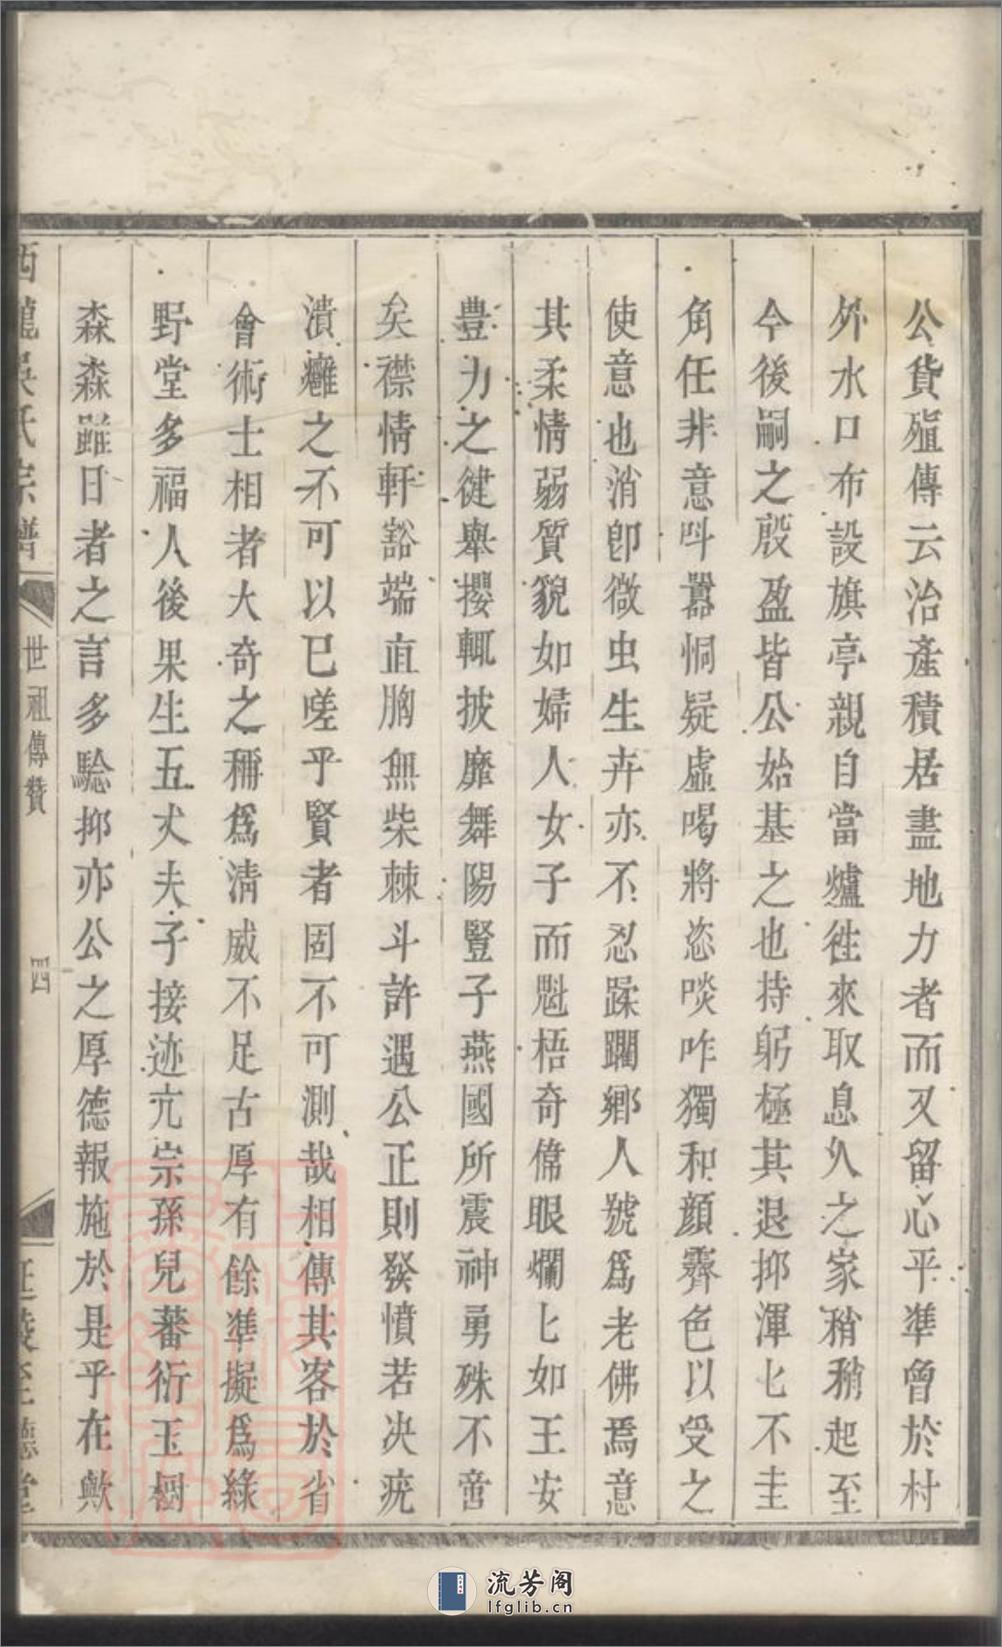 公貨殖傳云治產積居盡地力者而又留心平準曾於村
外水口布設旗亭親自當爐徃來取息久之家稍稍起至
今後嗣之殷盈皆公始基之也持躬極其退抑渾匕不圭
角任非意呌囂恫疑虛喝將恣啖咋獨和顏霽色以受之
使意也消卽微虫生卉亦不忍蹂躙鄉人號爲老佛焉意
其柔情弱質貌如婦人女子而魁梧奇偉眼爛匕如王安
豐力之健舉攖輒披靡舞陽豎子燕國所震神勇殊不啻
矣襟情軒豁端直胸無柴棘斗許遇公正則發憤若決疣
潰癰之不可以已嗟乎賢者固不可測哉相傳其客於省
會術士相者大奇之稱爲清威不足古厚有餘準擬爲綠
野堂多福人後果生五丈夫子接迹亢宗孫兒蕃衍玉樹
森森雖日者之言多騐抑亦公之厚德報施於是乎在歟
吳氏宗譜
世祖傳贊
四
德堂
流芳阁
lfglib.cn